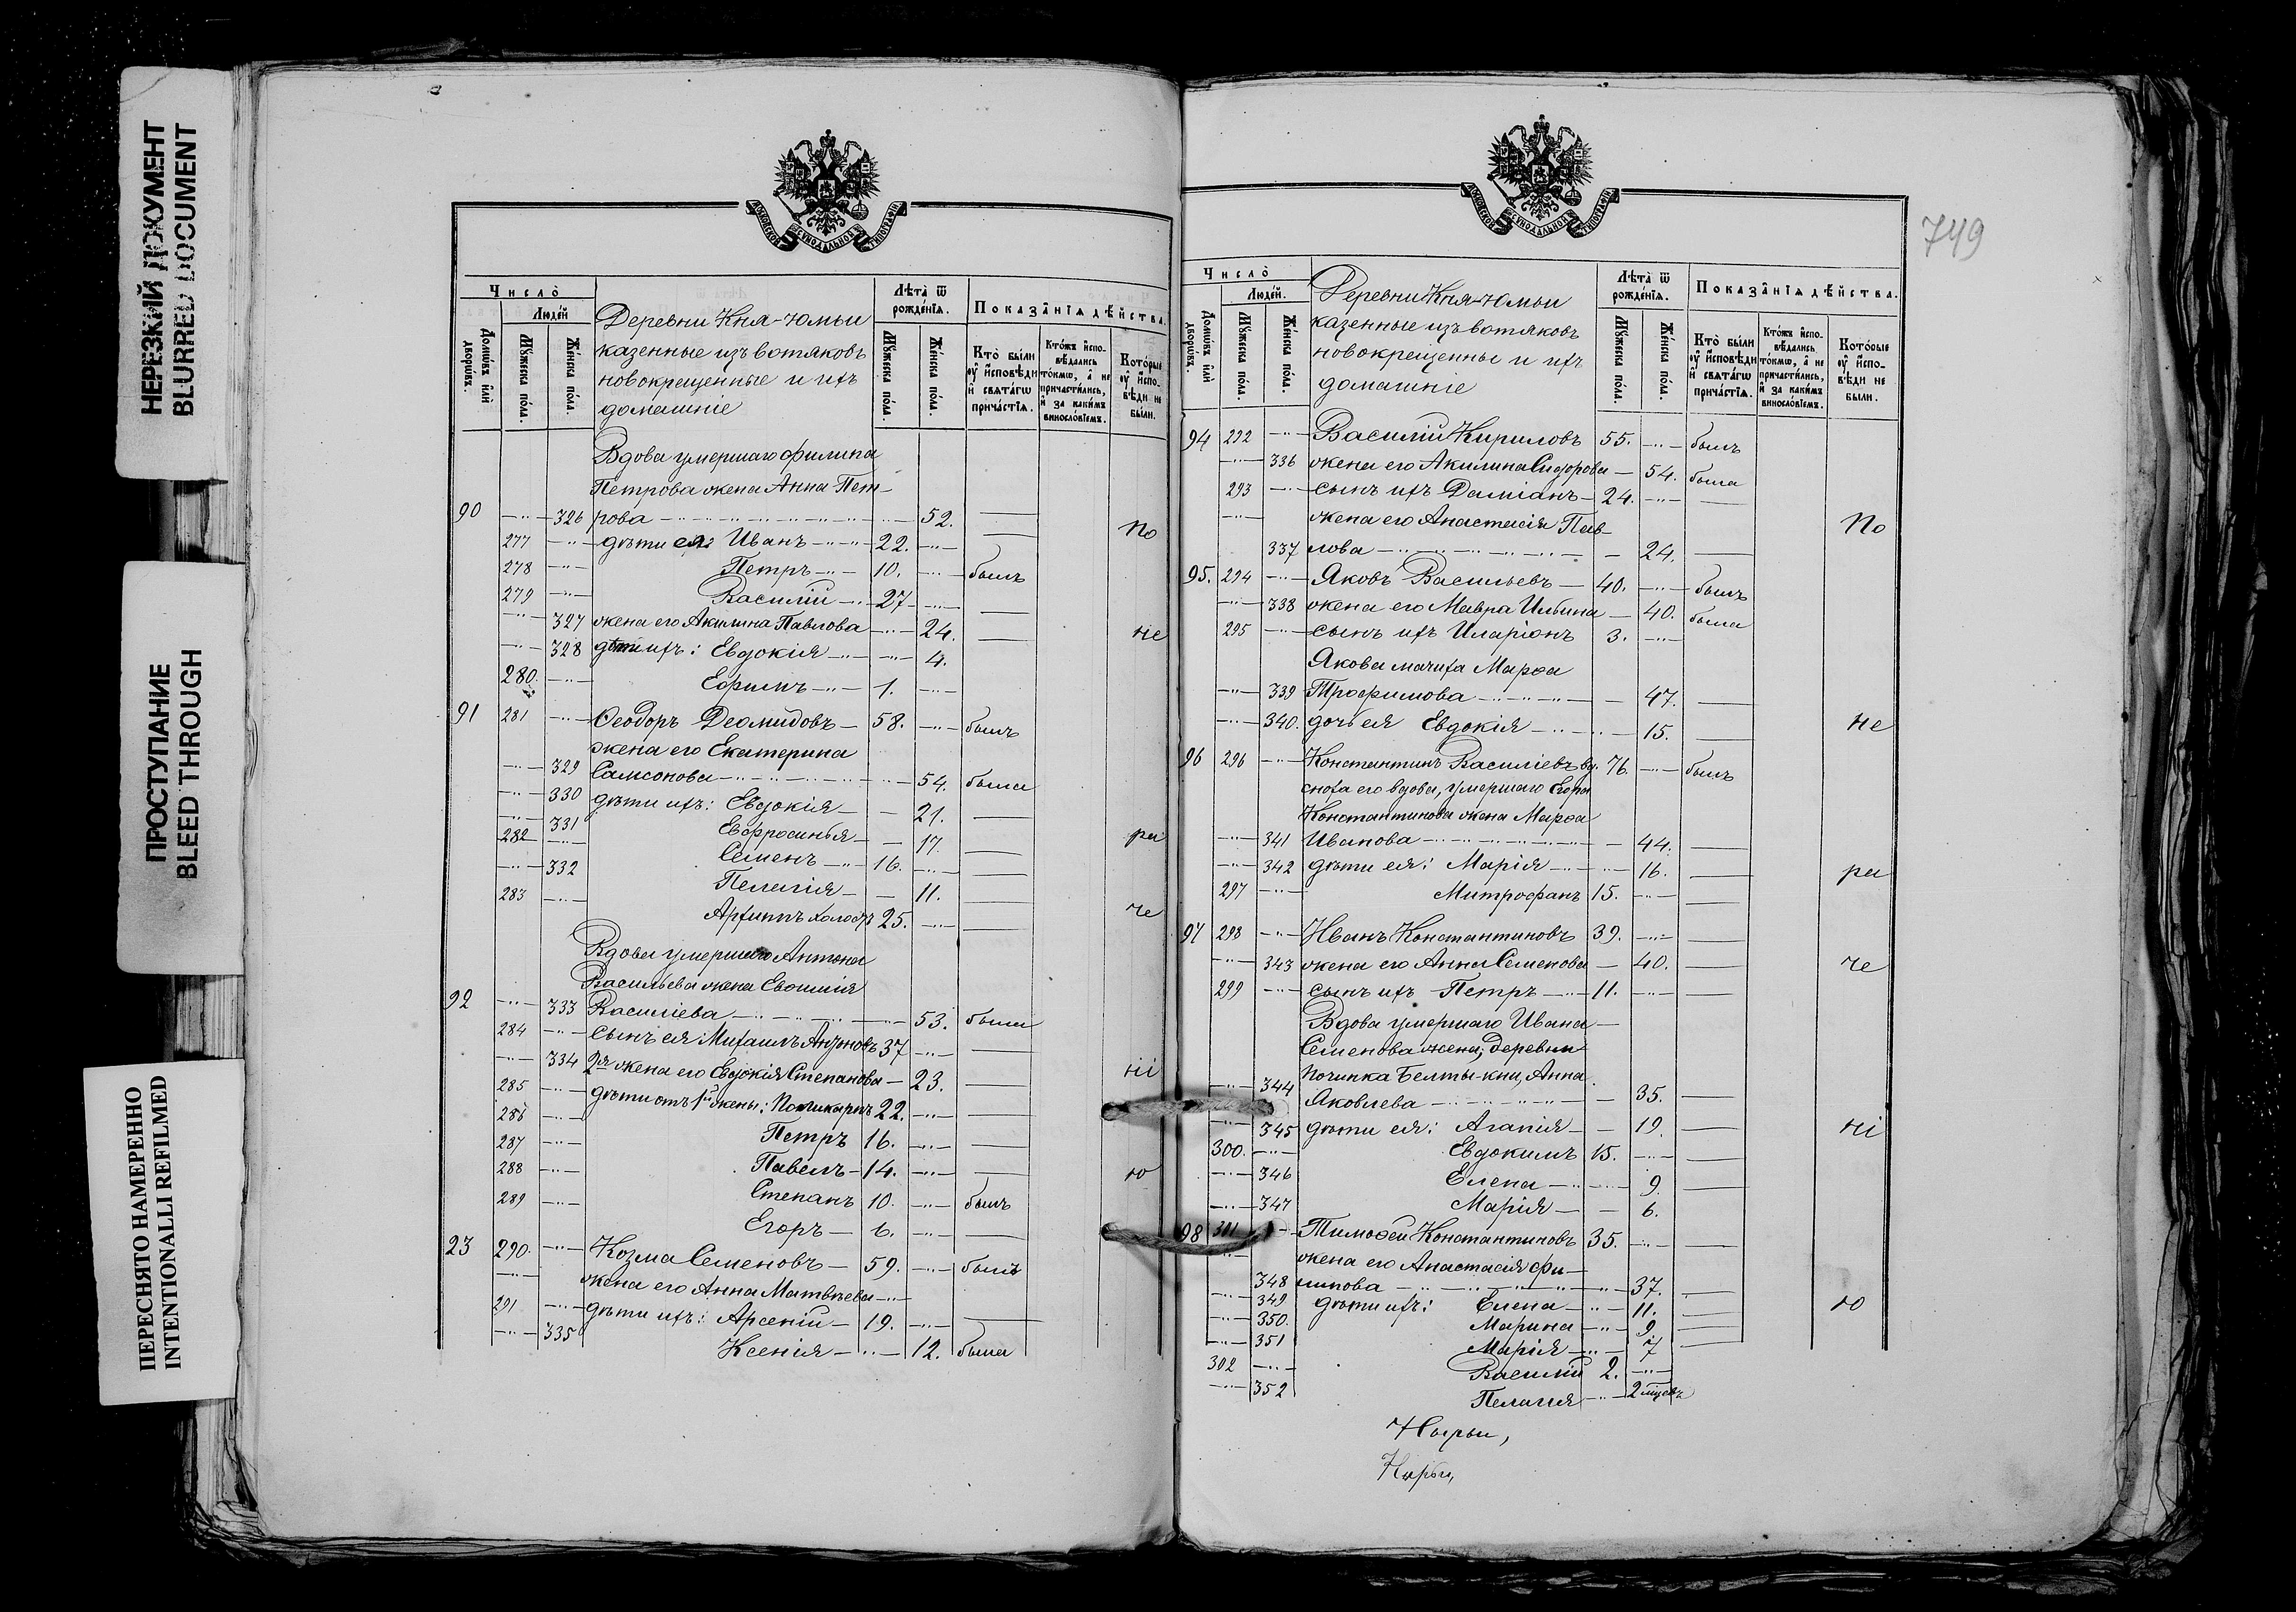 НЕРЕЗКИЙ ДОКУМЕНТ
BLURRED DOCUMENT
ПРОСТУПАНИЕ
BLEED THROUGH
ПЕРЕСНЯТО НАМЕРЕННО
INTENTIONALLI REFILMED
МОСКОВСКОЙ СѴНОДАЛЬНОЙ ТИПОГРАФІИ
Число̀
Людей
Домѡвъ и҆лѝ дворѡвъ.
Мꙋжеска пола.
Женска пола.
Деревни Кня-Юмьи
казенные изъ вотяковъ
новокрещенные и ихъ
домашніе
Лѣта ѿ рожденїѧ.
Мꙋжеска пола.
Женска пола.
Показанїѧ дѣйства.
Кто были ꙋ исповѣди и свѧтагѡ причастїѧ.
Ктожъ исповѣдались токмѡ, а не причастились, и за какимъ винословїемъ.
Которые ꙋ исповѣди не были.
Вдова умершаго Филипа
Петрова жена Анна Пет-
90 326 рова 52.
277 дѣти ея: Иванъ 22. По
278 Петръ 10. былъ
279 Василій 27
327 жена его Акилина Павлова 24. не
328 дѣти ихъ: Евдокія 4.
280. Ефимъ 1.
91 281 Ѳеодоръ Деомидовъ 58. былъ
жена его Екатерина
329 Самсонова 54. была
330 дѣти ихъ: Евдокія 21.
331 Евфросинья 17. ра
282 Семенъ 16.
332 Пелагія 11.
283 Архипъ холостъ 25. че
Вдова умершаго Антона
Васильева жена Евѳимія
92 333 Василіева 53. была
284 сынъ ея Михаилъ Антоновъ 37
334 2я жена его Евдокія Степанова 23. ні
285 дѣти отъ 1й жены: Поликарпъ 22.
286 Петръ 16.
287 Павелъ 14.
288 Степанъ 10. былъ ю
289 Егоръ 6.
23 290. Козма Семеновъ 59. былъ
жена его Анна Матвѣева
291 дѣти ихъ: Арсеній 19.
335 Ксенія 12. была
749
МОСКОВСКОЙ СѴНОДАЛЬНОЙ ТИПОГРАФІИ
Число̀
Людей.
Домѡвъ и҆лѝ дворѡвъ.
Мꙋжеска пола.
Женска пола.
Деревни Кня-Юмьи
казенные изъ вотяковъ
новокрещенны и ихъ
домашніе
Лѣта ѿ рожденїѧ.
Мꙋжеска пола.
Женска пола.
Показанїѧ дѣйства.
Кто были ꙋ исповѣди и свѧтагѡ причастїѧ.
Ктожъ исповѣдались токмѡ, а не причастились, и за какимъ винословїемъ.
Которые ꙋ исповѣди не были.
94 292 Василій Кириловъ 55. былъ
336 жена его Акилина Сидорова 54. была
293 сынъ ихъ Даміанъ 24.
жена его Анастасія Пав- По
337 лова 24.
95. 294 Яковъ Васильевъ 40. былъ
338 жена его Мавра Ильина 40. была
295 сынъ ихъ Иларіонъ 3.
Якова мачиха Марѳа
339 Трофимова 47.
340. дочь ея Евдокія 15. не
96 296 Константинъ Василіевъ вд. 76. былъ
сноха его вдова, умершаго Егора
Константинова жена Марѳа
341 Иванова 44.
342 дѣти ея: Марія 16. ра
297 Митрофанъ 15.
97 298 Иванъ Константиновъ 39.
343 жена его Анна Семенова 40. че
299 сынъ ихъ Петръ 11.
Вдова умершаго Ивана
Семенова жена, деревни
Починка Белты-кни, Анна
344 Яковлева 35.
345 дѣти ея: Агапія 19. ні
300. Евдокимъ 15.
346 Елена 9.
347 Марія 6.
98 301 Тимоѳей Константиновъ 35.
жена его Анастасія Фи-
348 липова 37.
349 дѣти ихъ: Елена 11. ю
350. Марина 9
351 Марія 7
302 Василій 2.
352 Пелагія 2 мѣсяцъ